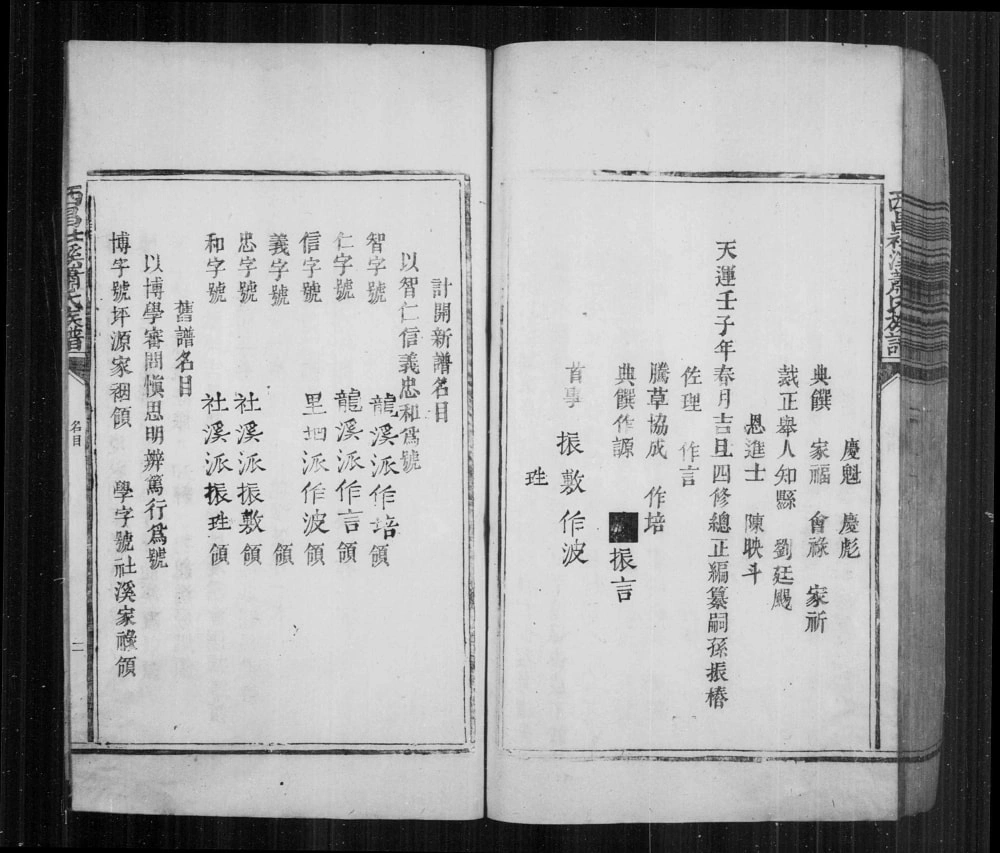 慶魁 慶彪
典饌 家福 會祿 家祈
裁正舉人知縣 劉廷颺
恩進士 陳映斗
天運壬子年春月吉旦四修總正編纂嗣孫振椿
佐理 作言
騰草協成 作培
典饌作源 振言
首事 振敷 作波
珄
西昌社溪蕭氏族譜
計開新譜名目
以智仁信義忠和爲號
智字號 龍溪派作培領
仁字號 龍溪派作言領
信字號 里田派作波領
義字號 領
忠字號 社溪派振敷領
和字號 社溪派振珄領
舊譜名目
以博學審問愼思明辨篤行爲號
博字號坪源家裀領 學字號社溪家祿領
西昌社溪蕭氏族譜
名目
二